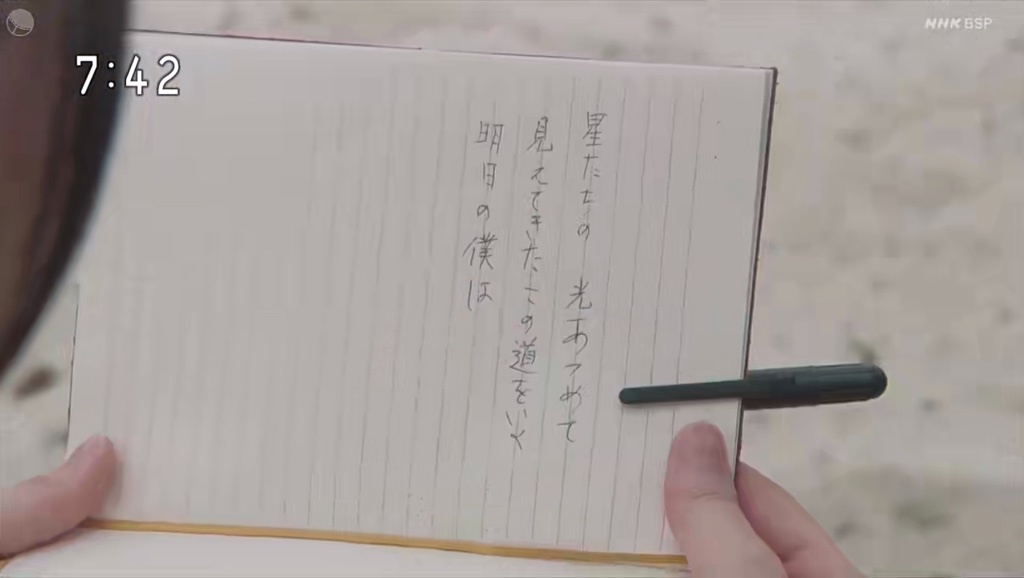 7:42
NHK BSP
星たちの 光あつめて
見えてきたこの道をいく
明日の僕は